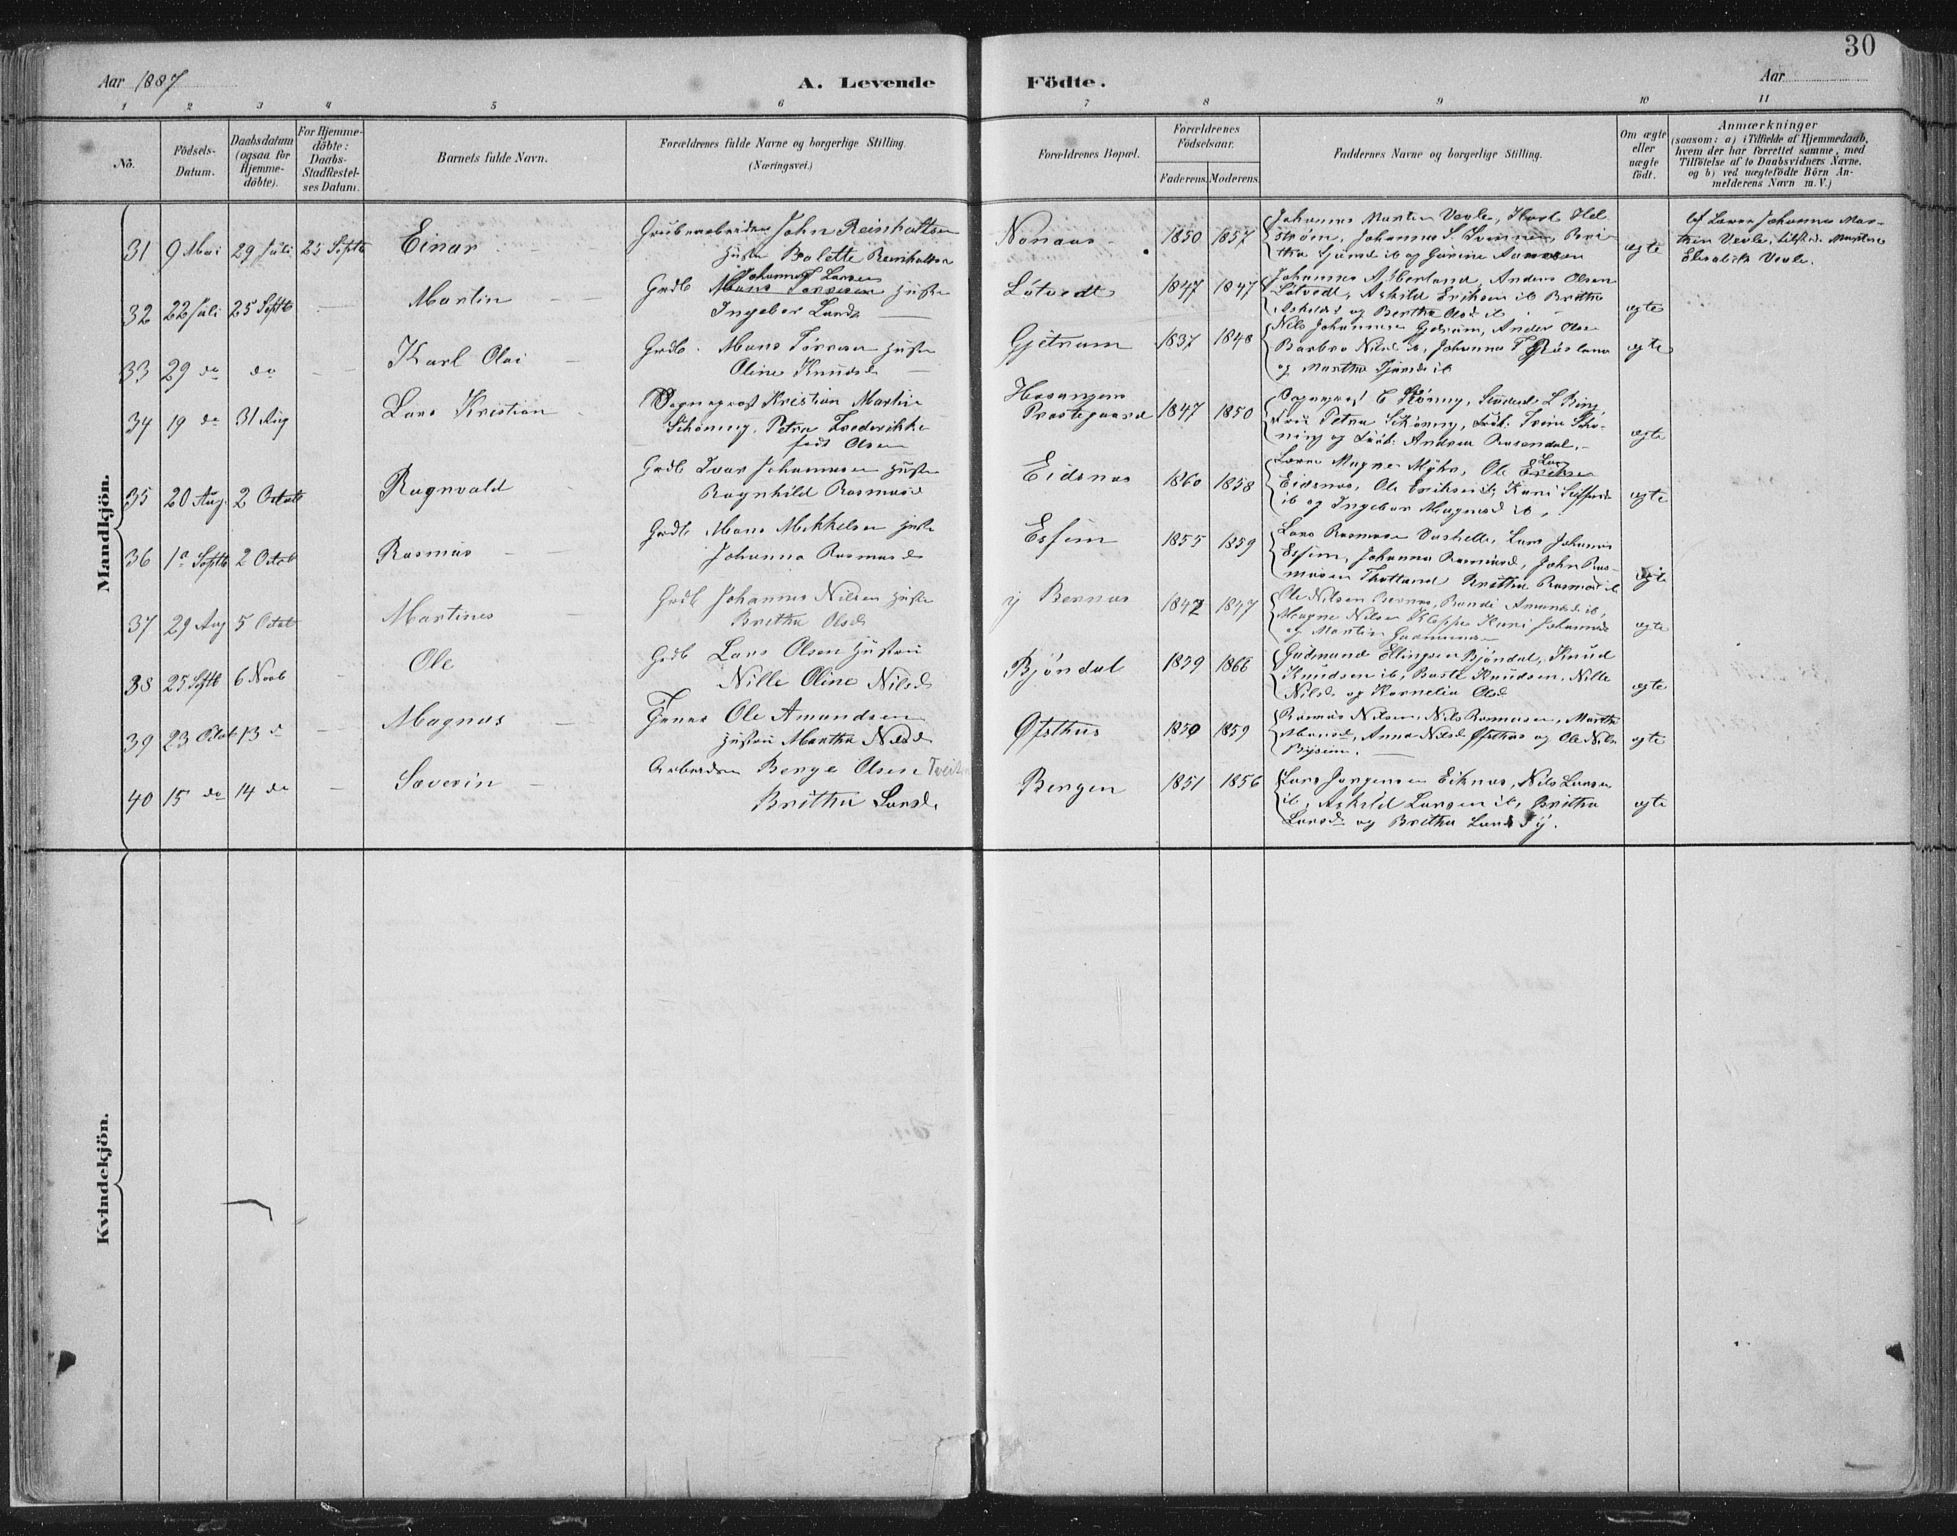 30
Aar 1887
A. Levende Födte.
Aar
1 2 3 4 5 6 7 8 9 10 11
No.
Födsels-
Datum.
Daabsdatum
(ogsaa for
Hjemme-
döbte).
For Hjemme-
döbte:
Daabs-
Stadfæstel-
ses Datum.
Barnets fulde Navn.
Forældrenes fulde Navne og borgerlige Stilling.
(Næringsvei.)
Forældrenes Bopæl.
Forældrenes
Födselsaar.
Faderens. Moderens.
Faddernes Navne og borgerlige Stilling.
Om ægte
eller
uægte
födt.
Anmærkninger
(saasom: a) i Tilfælde af Hjemmedaab,
hvem der har forrettet samme, med
Tilföielse af to Daabsvidners Navne,
og b) ved uægtefödte Börn An-
melderens Navn m. V.)
Mandkjön.
31 9 Mai 29 Juli 25 Septb Einar
Grubearbeider John Reinholtsen
Hustru Bolette Reinholtsen
Nonaas 1850 1857
Johannes Morten Vevle,
ægte
Af Lærer Johannes Mor-
tken Vevle,
Elisabeth Vevle.
32 22 Juli 25 Septb Martin
Johannes Larsen
Grdb Mons Torresen Hustru
Ingebor Larsd
Lötvedt 1847 1847
Johannes A Aberland, Anders Olsen
Lötvedt, Askild Eriksen ib Britha
Askildsd og Bertha Olsd ib
ægte
33 29 do do Karl Olai
Grdb. Mons Torresen Hustru
Oline Knudsd
Gjetram 1837 1848
Nils Johannesen Gjetram, Anders Olsen
Barbro Nilsd ib, Johannes T
og Martha ib
ægte
34 19 do 31 Aug Lars Kristian
Sogneprest Kristian Martin
Schönning, Petra Frederikke
födt Olsen
Hosangers
Prestegaard 1847 1850
Sogneprest C Schönning, Student L Ring,
Fru Petra Schönning, Frök: Trine Schön-
ning og Fröb: Andrea Rosendal.
ægte
35 20 Aug. 2 Octob Ragnvald
Grdb Ivar Johannesen Hustru
Ragnhild Rasmusd
Eidsnes 1860 1858
Lærer Magne Myhr, Ole Lars
Eidsnes, Ole Eriksen ib, Kari
ib og Ingebor Magnesd ib.
ægte
36 10 Septb 2 Octob Rasmus
Grdb Mons Mikkelsen Hustru
Johanna Rasmusd
Essem 1855 1859
Lars Rasmusen Lars Johannes
Johanna Rasmusd, John Ras-
musen Britha Rasmusd ib
ægte
37 29 Aug 5 Octob Martines
Grdb Johannes Nilsen Hustru
Britha Olsd
y Bernes 1842 1847
Ole Nilsen Bernes, Amundsd ib,
Magne Nilsen Kleppe Kari Johannesd
og Martin
ægte
38 25 Septb 6 Novb Ole
Grdb Lars Olsen Hustru
Nille Oline Nilsd
Bjöndal 1839 1866
Gudmund Ellingsen Bjöndal, Knud
Knudsen ib, Knudsen, Nille
Nilsd og Kornelia Olsd
ægte
39 23 Octob 13 d Magnus
Ole Amundsen
Hustru Martha Nilsd
Öfsthus 1850 1859
Rasmus Nilsen, Nils Rasmusen, Martha
Monsd, Anna Nilsd Öfsthus og Ole Nils
ægte
40 15 do 14 do Severin
Arbeider Berge Olsen Tveit
Britha Larsd.
Bergen 1851 1856
Lars Jorgensen Eiknes, Nils Larsen
ib, Askild Larsen ib, Britha
Larsd og Britha Larsd
ægte
Kvindekjön.